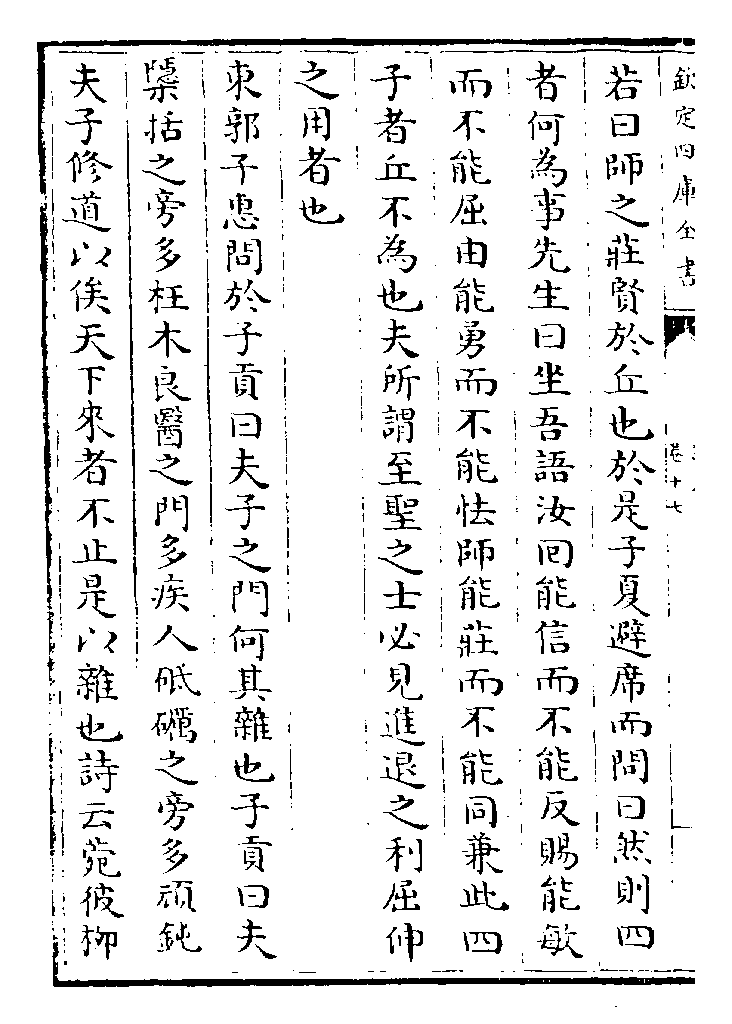 欽定四庫全書
卷十七
若曰師之莊賢於丘也於是子夏避席而問曰然則四
者何為事先生曰坐吾語汝回能信而不能反賜能敏
而不能屈由能勇而不能怯師能莊而不能同兼此四
子者丘不為也夫所謂至聖之士必見進退之利屈伸
之用者也
東郭子惠問於子貢曰夫子之門何其雜也子貢曰夫
檃括之旁多枉木良醫之門多疾人砥礪之旁多頑鈍
夫子修道以俟天下來者不止是以雜也詩云菀彼柳